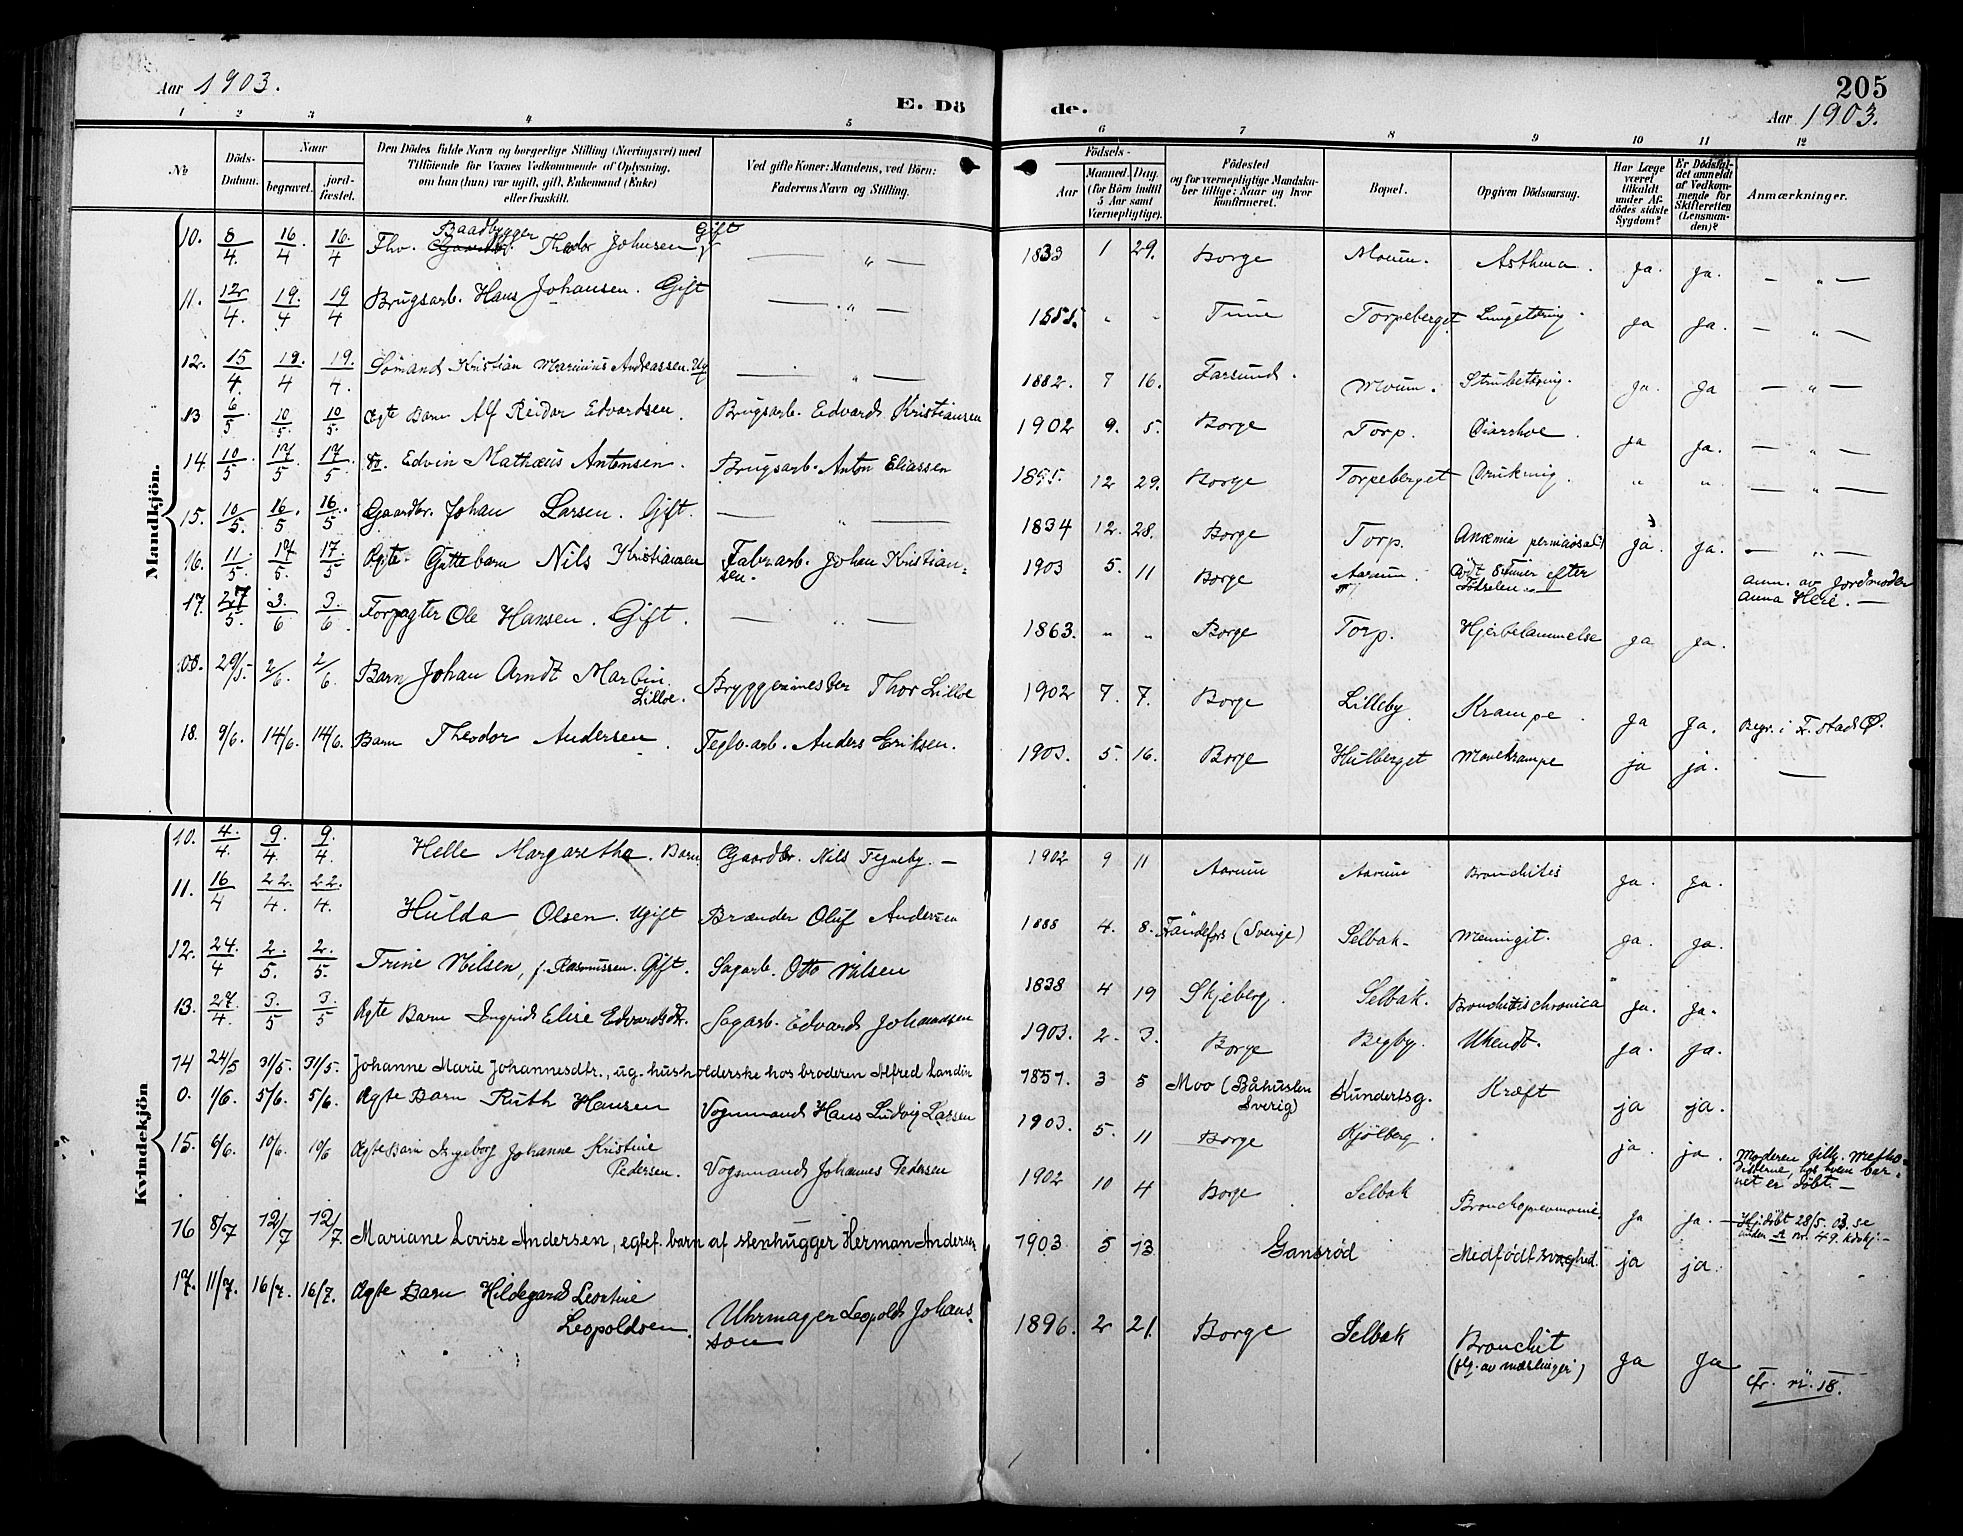 Aar 1903.
E. Dö
de.
205
Aar 1903.
1 2 3 4 5 6 7 8 9 10 11 12
No
Döds-Datum.
Naar
begravet.
jord-fæstet.
Den Dödes fulde Navn og borgerlige Stilling (Næringsvei) med
Tilföiende for Voxnes Vedkommende af Oplysning,
om han (hun) var ugift, gift, Enkemand (Enke)
eller fraskilt.
Ved gifte Koner: Mandens, ved Börn:
Faderens Navn og Stilling.
Födsels-
Aar
Maaned. Dag.
(for Börn indtil
5 Aar samt
Værnepligtige).
Födested
og for værnepligtige Mandskaber tillige: Naar og hvor
konfirmeret.
Bopæl.
Opgiven Dödsaarsag.
Har Læge været tilkaldt under Afdödes sidste Sygdom?
Er Dödsfaldet anmeldt af Vedkommende for Skifteretten (Lensmanden)?
Anmærkninger.
Mandkjön.
10. 8/4. 16/4 16/4 Fhv. Baadbygger Theodor Johnsen Gift — „ — 1833 1 29. Borge Moum. Asthma. Ja. Ja. — „ —
11. 12/4. 19/4 19/4 Brugsarb. Hans Johansen. Gift — „ — „ - Tune Torpeberget Lungetæring. Ja Ja. — „ —
12. 15/4. 19/4 19/4. Sømand Kristian Marinius Andreassen. Ug — „ — 1882. 7 16. Farsund. Moum. Strubetæring. Ja. Ja — „ —
13 6/5 10/5. 10/5. Ægte Barn Alf Reidar Edvardsen. Brugsarb. Edvard Kristiansen 1902 9. 5. Borge Torp. Diarrhoe. Ja Ja. — „ —
14. 10/5 17/5 17/5 Do. Edvin Mathæus Antonsen. Brugsarb. Anton Eliassen 12 29. Borge Torpeberget Drukning. „ „ — „ —
15. 10/5. 16/5 16/5 Gaardbr. Johan Larsen. Gift. — „ — 1834 12. 28. Borge Torp. Anæmia Ja. Ja. — „ —
16. 11/5. 17/5. 17/5 Ægte Guttebarn Nils Kristiansen Fabrarb. Johan Kristian=
sen. 1903 5. 11 Borge Aarum. efter
Fødselen. anm. av jordmoder
Anna Heie. —
17. 27/5. 3/6 3/6 Forpagter Ole Hansen. Gift. — „ — 1863. „ „ Borge Torp. Hjertelammelse Ja Ja.
08. 29/5- 2/6. 2/6. Barn Johan Arndt Martin
Lilloe. Bryggerimester Thor Lilloe 1902 7. 7. Borge Lilleby. Krampe. Ja Ja. Begr. i F.stad Ø.
18. 9/6. 14/6. 14/6. Barn Theodor Andersen. Teglv.arb. Anders Eriksen. 1903. 5. 16. Borge Hulberget Mavekrampe ja ja. —
Kvindekjön
10. 4/4. 9/4. 9/4. Helle Margarethe. Barn Gaardbr. Nils Tegneby. — 1902 9 11 Aarum Aarum Bronchites Ja. Ja.
11. 16/4 22/4. 22/4. Hulda Olsen. Ugift Brænder Oluf Andersen 1888 4. 8. (Sverige) Selbak- Meningit. Ja. Ja.
12. 24/4 2/5. 2/5. Trine Nilsen, f. Rasmussen. Gift. Sagarb. Otto Nilsen 1838 4 19 Skjeberg. Selbak. Bronchitis chronica Ja. Ja.
13. 27/4. 3/5 3/5 Ægte Barn Ingrid Elise Edvardsdtr. Sagarb. Edvard Johannsen 1903. 2. 3. Borge Begby. Ukendt. Ja. Ja.
14 24/5 31/5. 31/5. Johanne Marie Johannesdtr., ug. husholderske hos broderen Alfred Landin 1851. 3 5 Moo (Båhuslen
Sverig) Kundertsg. Kræft ja ja.
0. 1/6. 5/6. 5/6. Ægte Barn Ruth Hansen Vognmand Hans Ludvig Larsen 1903. 5. 11 Borge Kjølberg. ja. ja.
15. 6/6. 10/6. 10/6 Ægte Barn Ingeborg Johanne Kristine
Pedersen. Vognmand Johannes Pedersen 1902 10 4 Borge Selbak Bronchopneumonie. Ja Ja. Moderen tilh. Metho-
disterne, hos hvem bar-
net er døbt. —
16 8/7 12/7 12/7. Mariane Lovise Andersen, egtef. barn af stenhugger Herman Andersen 1903 5 13 Gansrød Medfødt svaghed. ja ja. Hj.døbt 28/5. 03. se
under A nr. 49. Kvkj. —
17. 11/7. 16/7. 16/7. Ægte Barn Hildegard Leontine
Leopoldsen. Uhrmager Leopold Johans-
son 1896. 2 21. Borge Selbak Bronchit
(flg. av mæslinger) Ja Ja
cfr. nr. 18.